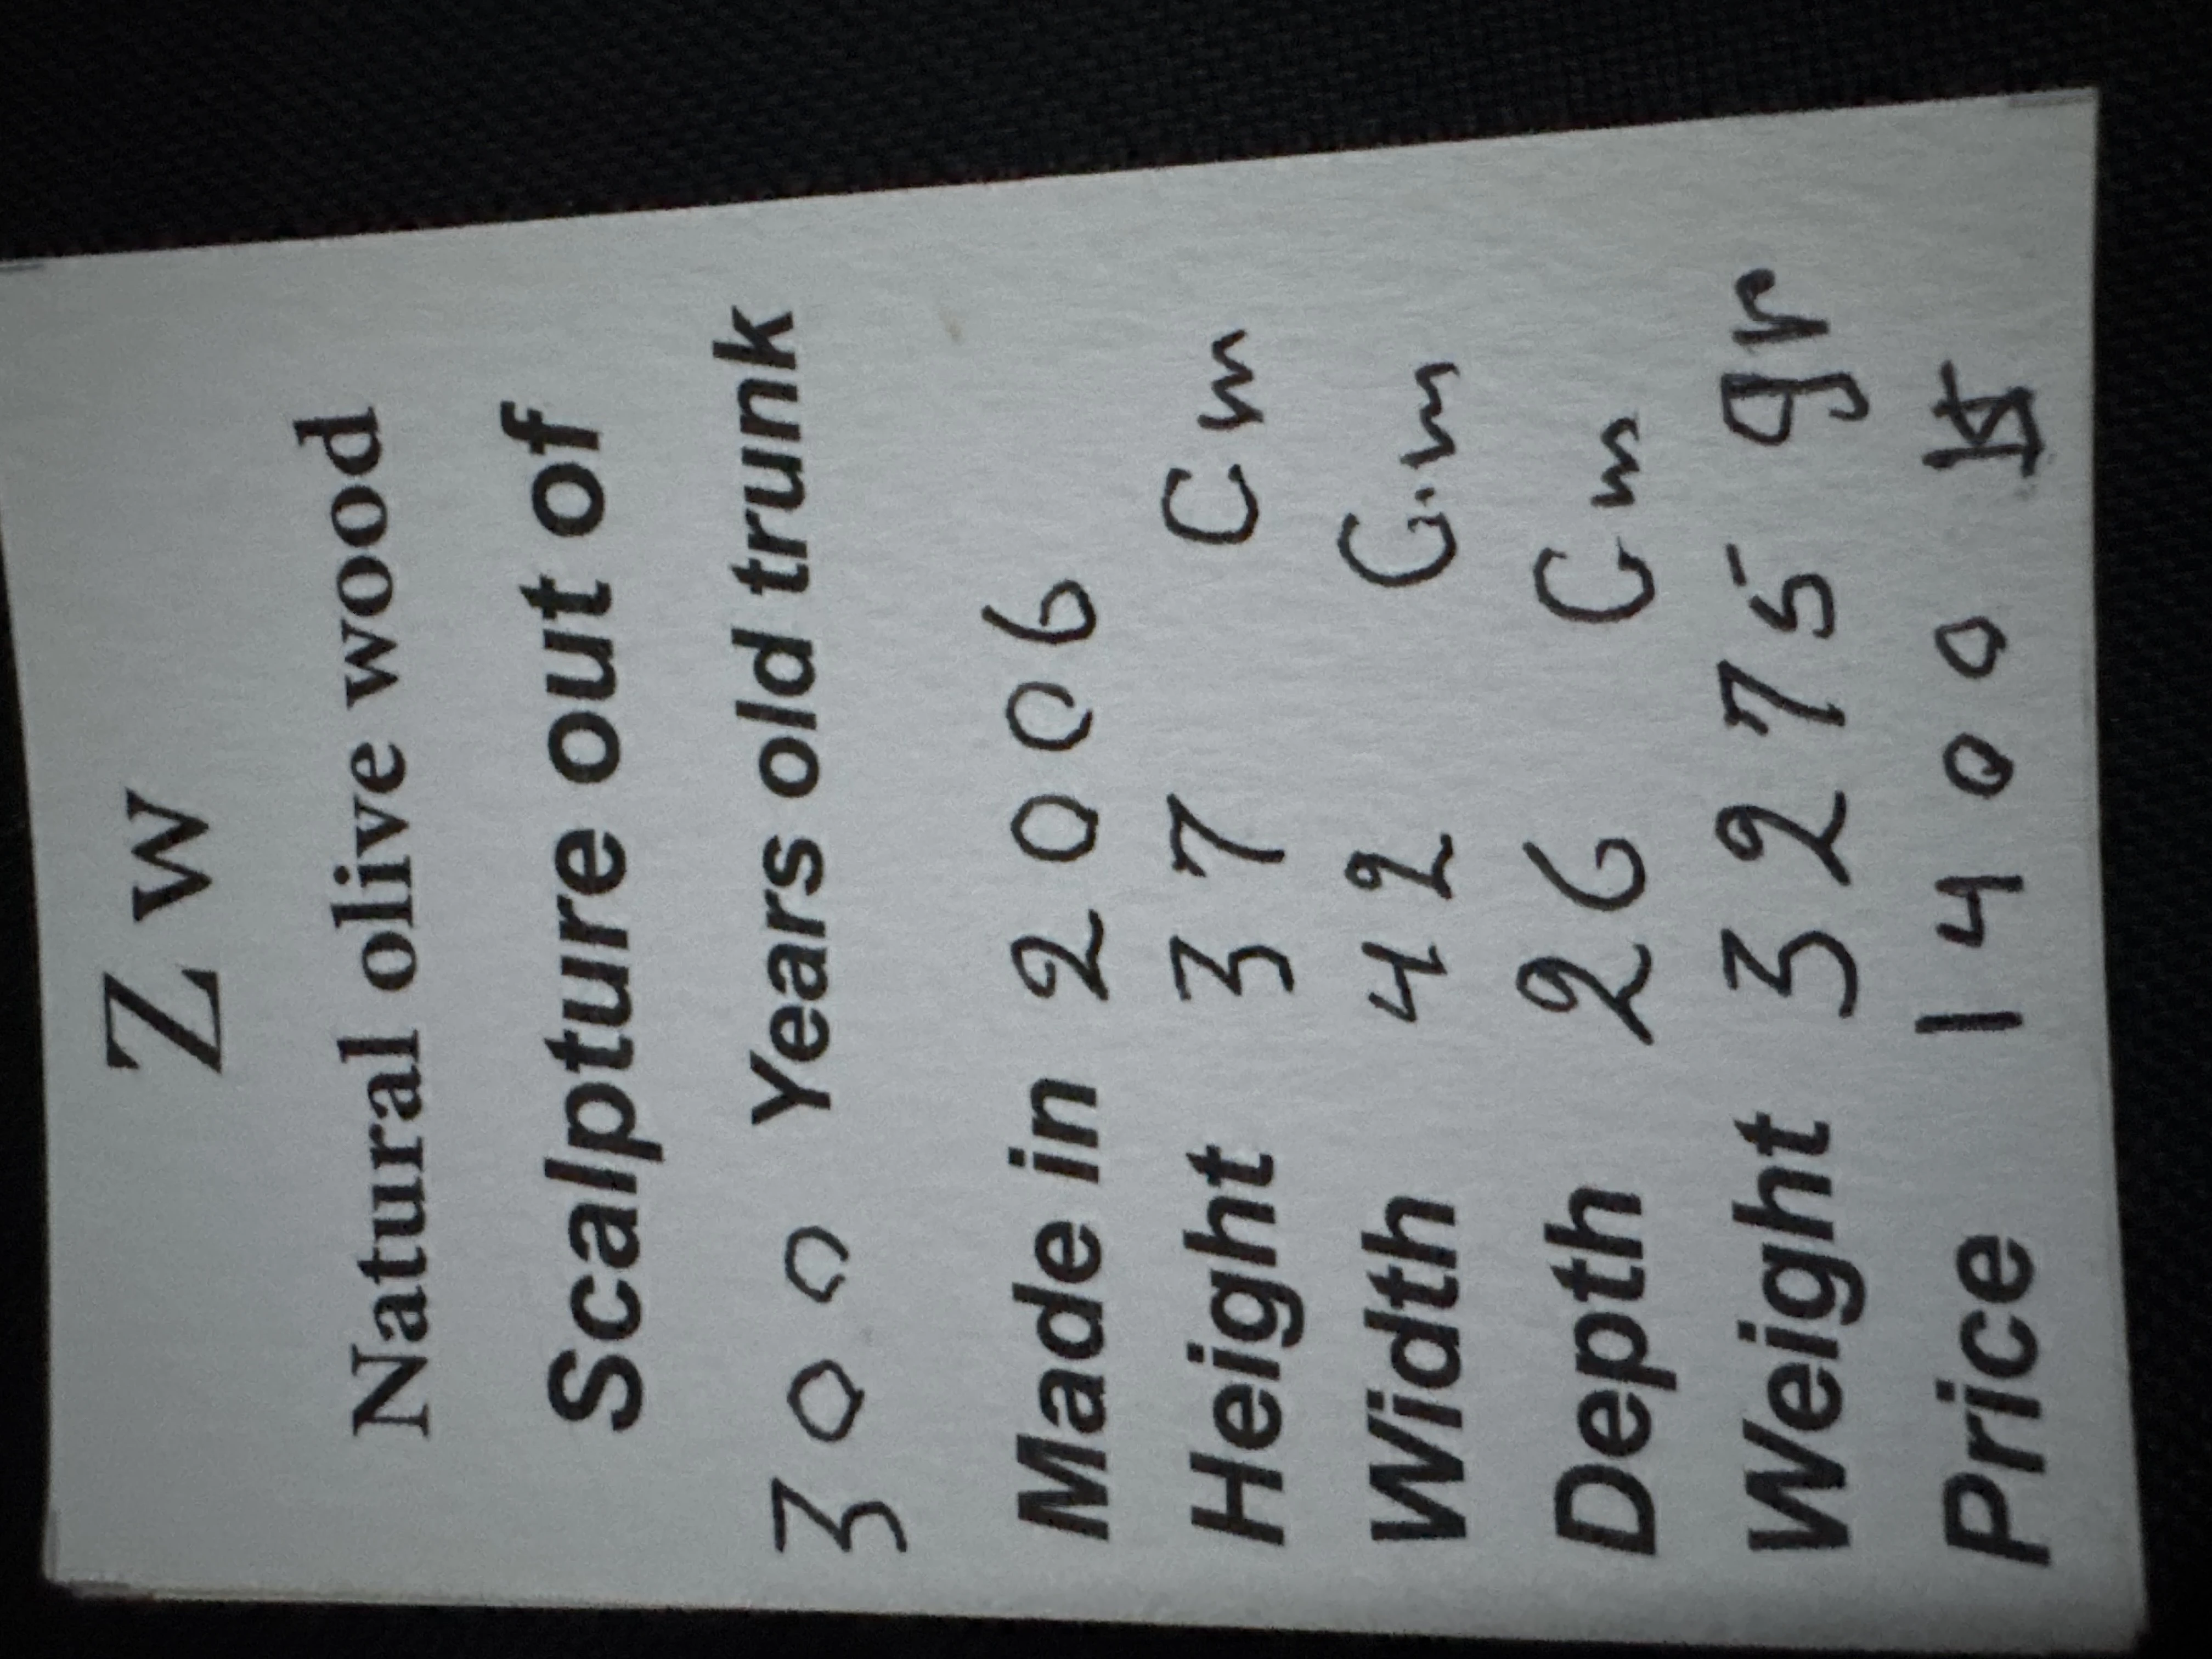 Z W
Natural olive wood
Scalpture out of
300 Years old trunk
Made in 2006
Height 37 Cm
Width 42 Cm
Depth 26 Cm
Weight 3275 gr
Price 1400